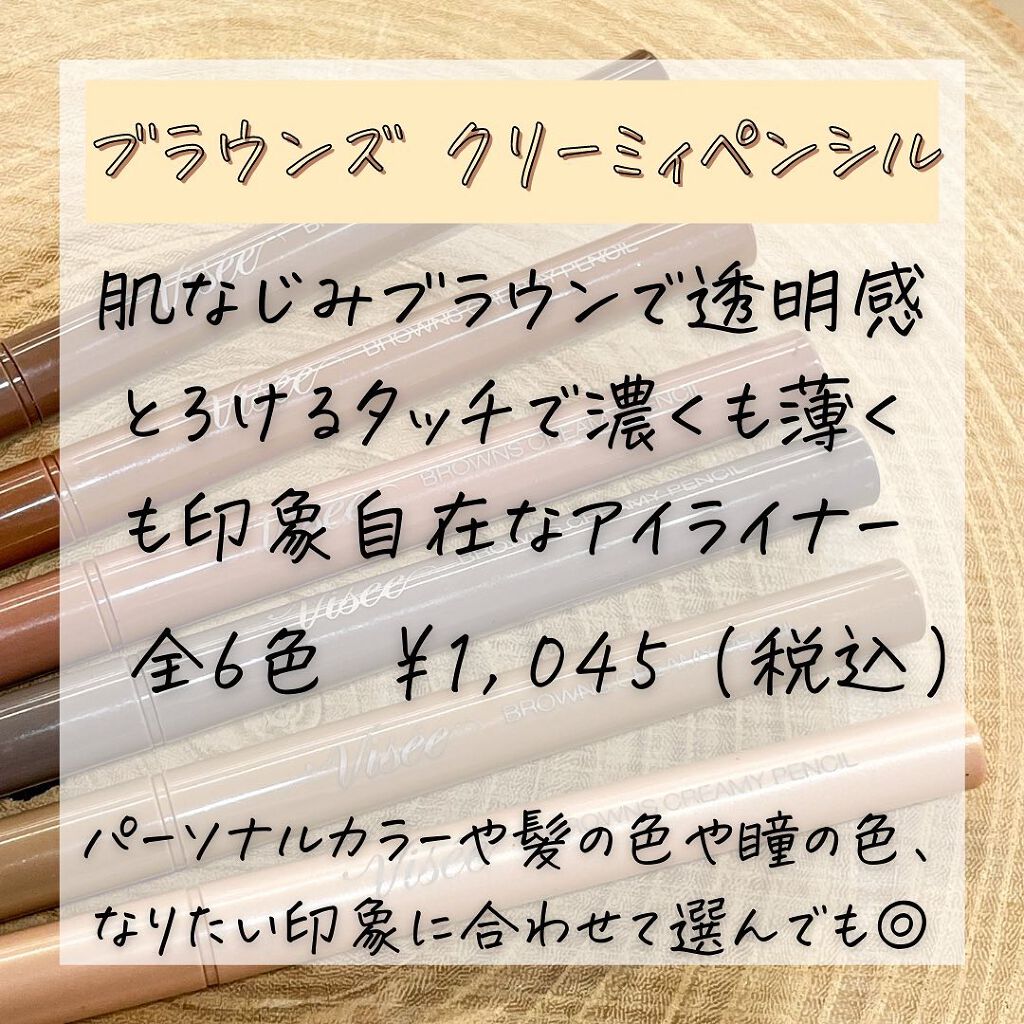 ブラウンズ クリーミィペンシル
肌なじみブラウンで透明感
とろけるタッチで濃くも薄く
も印象自在なアイライナー
全6色 ¥1,045（税込）
パーソナルカラーや髪の色や瞳の色、
なりたい印象に合わせて選んでも◎
Visée
BROWNS CREAMY PENCIL
Visée
BROWNS CREAMY PENCIL
BROWNS CREAMY PENCIL
Visée
BROWNS CREAMY PENCIL
Visée
BROWNS CREAMY PENCIL
Visée